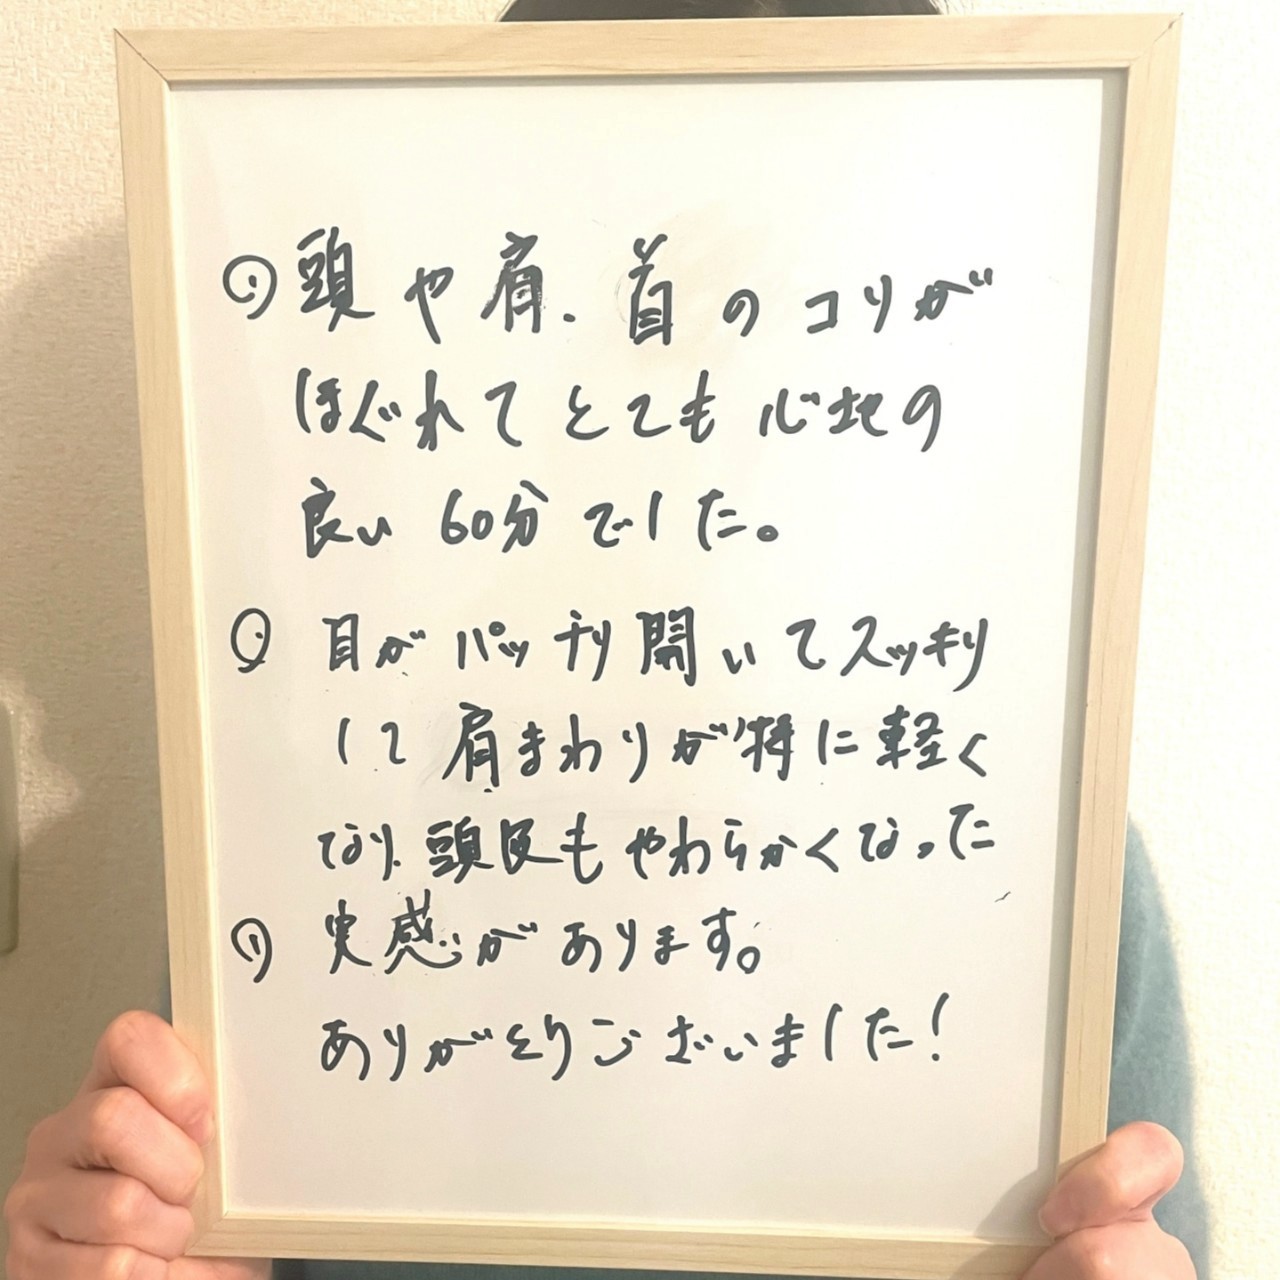 頭や肩、首のコリが
ほぐれてとても心地の
良い60分でした。
目がパッチリ開いてスッキリ
して肩まわりが特に軽く
なり、頭皮もやわらかくなった
実感があります。
ありがとうございました!